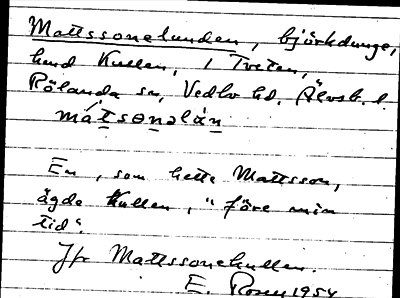 Mattssonelunden, björkdunge,
hmd Kullen, 1 Tveten,
Rölanda sn, Vedbo hd, Älvsb. l.
mátsonəlàn
En, som hette Mattsson,
ägde Kullen, "före min
tid".
Jfr Mattssonekullen.
E. Rosen 1954